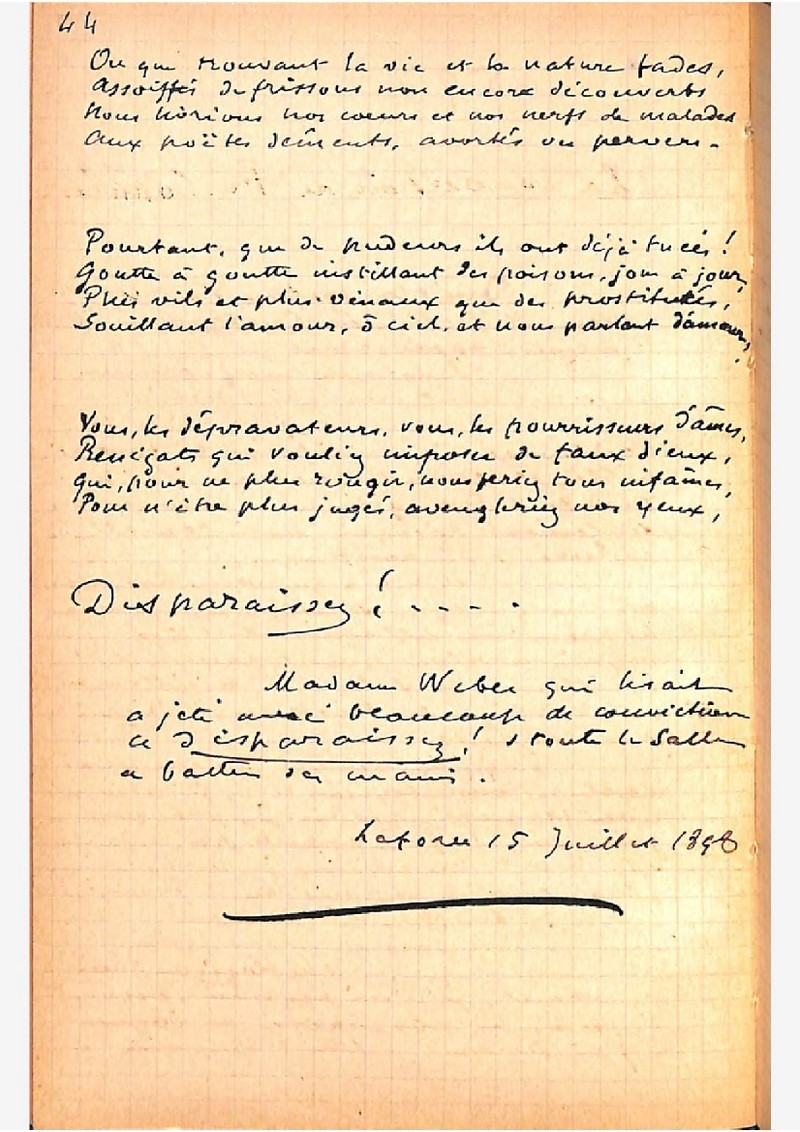 44
Ou que trouvant la vie et la nature fades,
Assoiffés de frissons non encore découverts
Nous livrions nos coeurs et nos nerfs de malades
Aux poëtes déments, avortés ou pervers.
Pourtant, que de pudeurs ils ont déjà tuées !
Goutte à goutte instillant des poisons, jour à jour,
Plus vils et plus vénaux que des prostituées,
Souillant l'amour, ô ciel, et nous parlant d'amour,
Vous, les dépravateurs, vous, les pourrisseurs d'âmes,
Renégats qui vouliez imposer de faux dieux,
Qui, pour ne plus rougir, nous feriez tous infâmes,
Pour n'être plus jugés, aveugleriez nos yeux,
Disparaissez ! . . . .
Madame Weber qui lisait
a jeté avec beaucoup de conviction
ce Disparaissez ! & toute la Salle
a battu des mains.
15 Juillet 1898